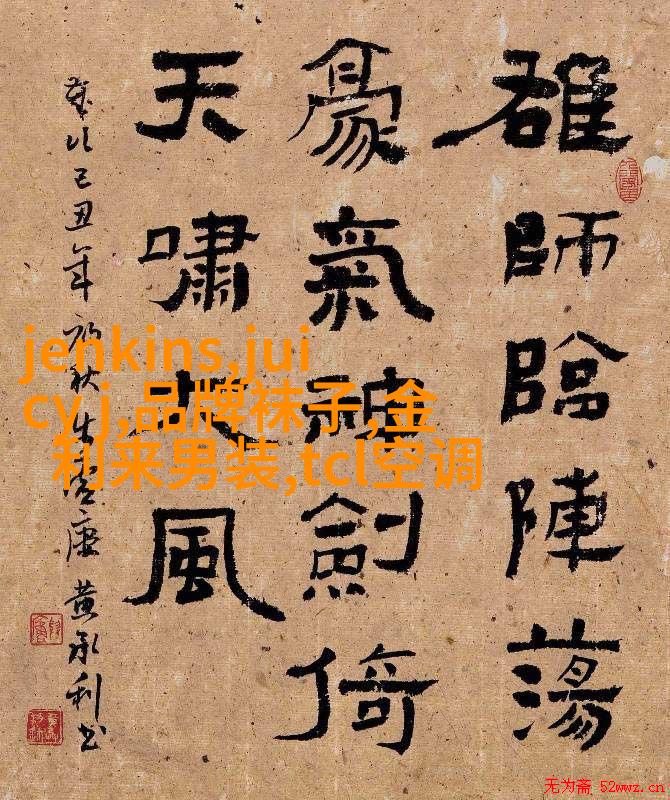 雄師臨陣蕩
豪氣神劍倚
天嘯大風
己丑年初秋
黄永利书
jenkins,jui
cy j,品牌袜子,金
利来男装,tcl空调
无为斋 52wwz.cn